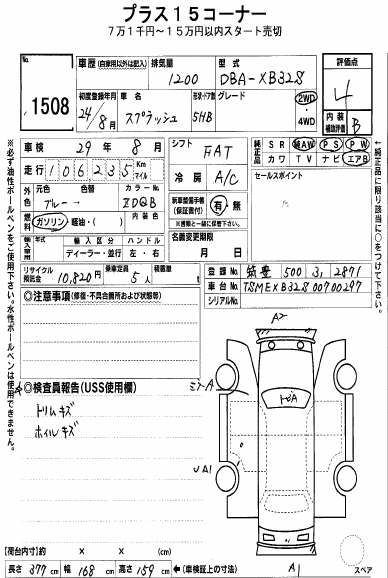 プラス15コーナー
7万1千円〜15万円以内スタート売切
No.
1508
車歴(自家用以外は記入)
排気量
1200
型式
DBA-XB32S
評価点
4
初度登録年月
24/8月
車名
スプラッシュ
形状・ドア数
5HB
グレード
2WD
・
4WD
内装
補助評価
B
車検
29年8月
シフト
FAT
純正品
SR 純AW PS PW
カワ TV ナビ エアB
走行
106235
Km
マイル
冷房
A/C
セールスポイント
外色
元色
ブルー→
色替
カラーNo.
ZDQB
新車整備手帳
(保証書付)
有・無
※書類と一緒に保管に出す。
燃料
ガソリン・軽油・( )
内装色
輸入車
年式
輸入区分
ディーラー・並行
ハンドル
左・右
名義変更期限
月 日
リサイクル
預託金
10,820円
乗車定員
5人
積載量
登録No.
筑豊 500 す 2871
車台No.
TSMEXB32S00700297
シリアルNo.
◎注意事項(修復・不具合箇所および状態等)
◎検査員報告(USS使用欄)
トリムキズ
ホイルキズ
A2
ミラーA
トビA
UA1
A1
スペア
【荷台内寸】約 × × (cm)
長さ 377cm 幅 168cm 高さ 159cm ←(車検証上の寸法)
※必ず油性ボールペンをご使用下さい。水性ボールペンは使用できません。
*純正品に限り該当に○をつけて下さい。